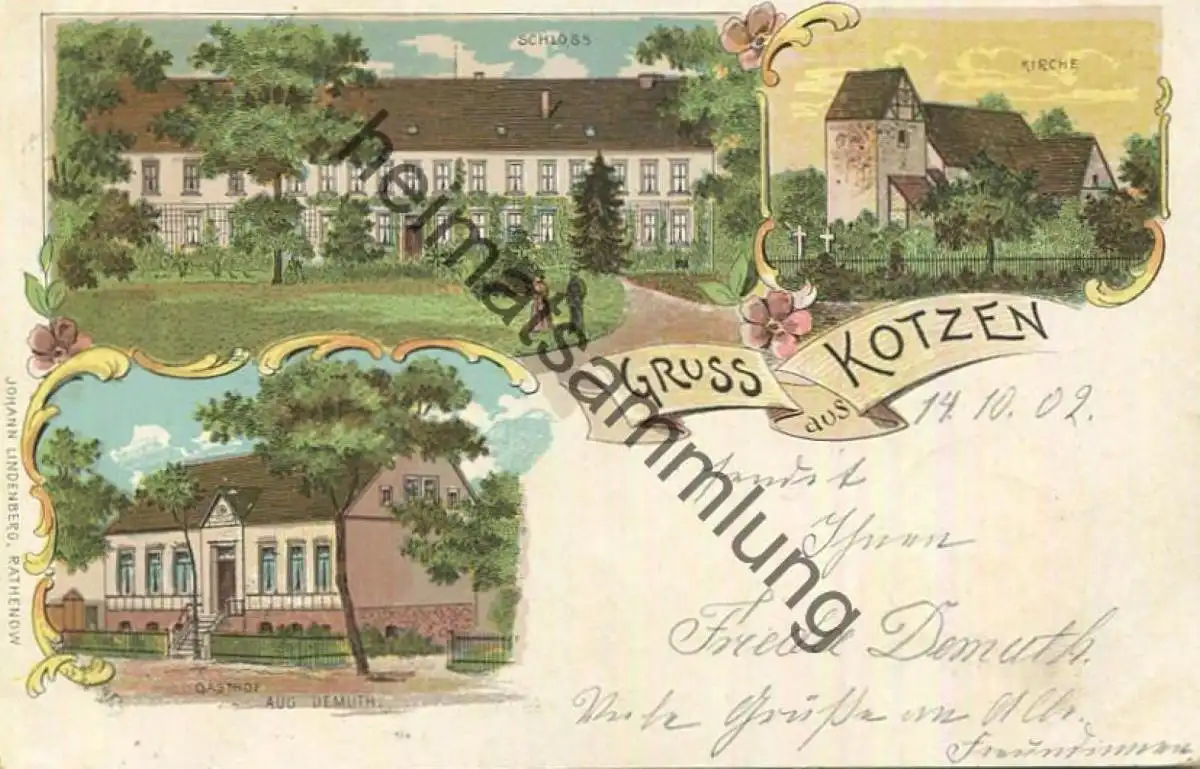 SCHLOSS
KIRCHE
GRUSS
aus
KOTZEN
14.10.02.
sendet
Ihnen
Frieda Demuth.
Viele Grüße an Alle.
Freundinnen
GASTHOF
AUG DEMUTH.
JOHANN LINDENBERG, RATHENOW
heimatsammlung